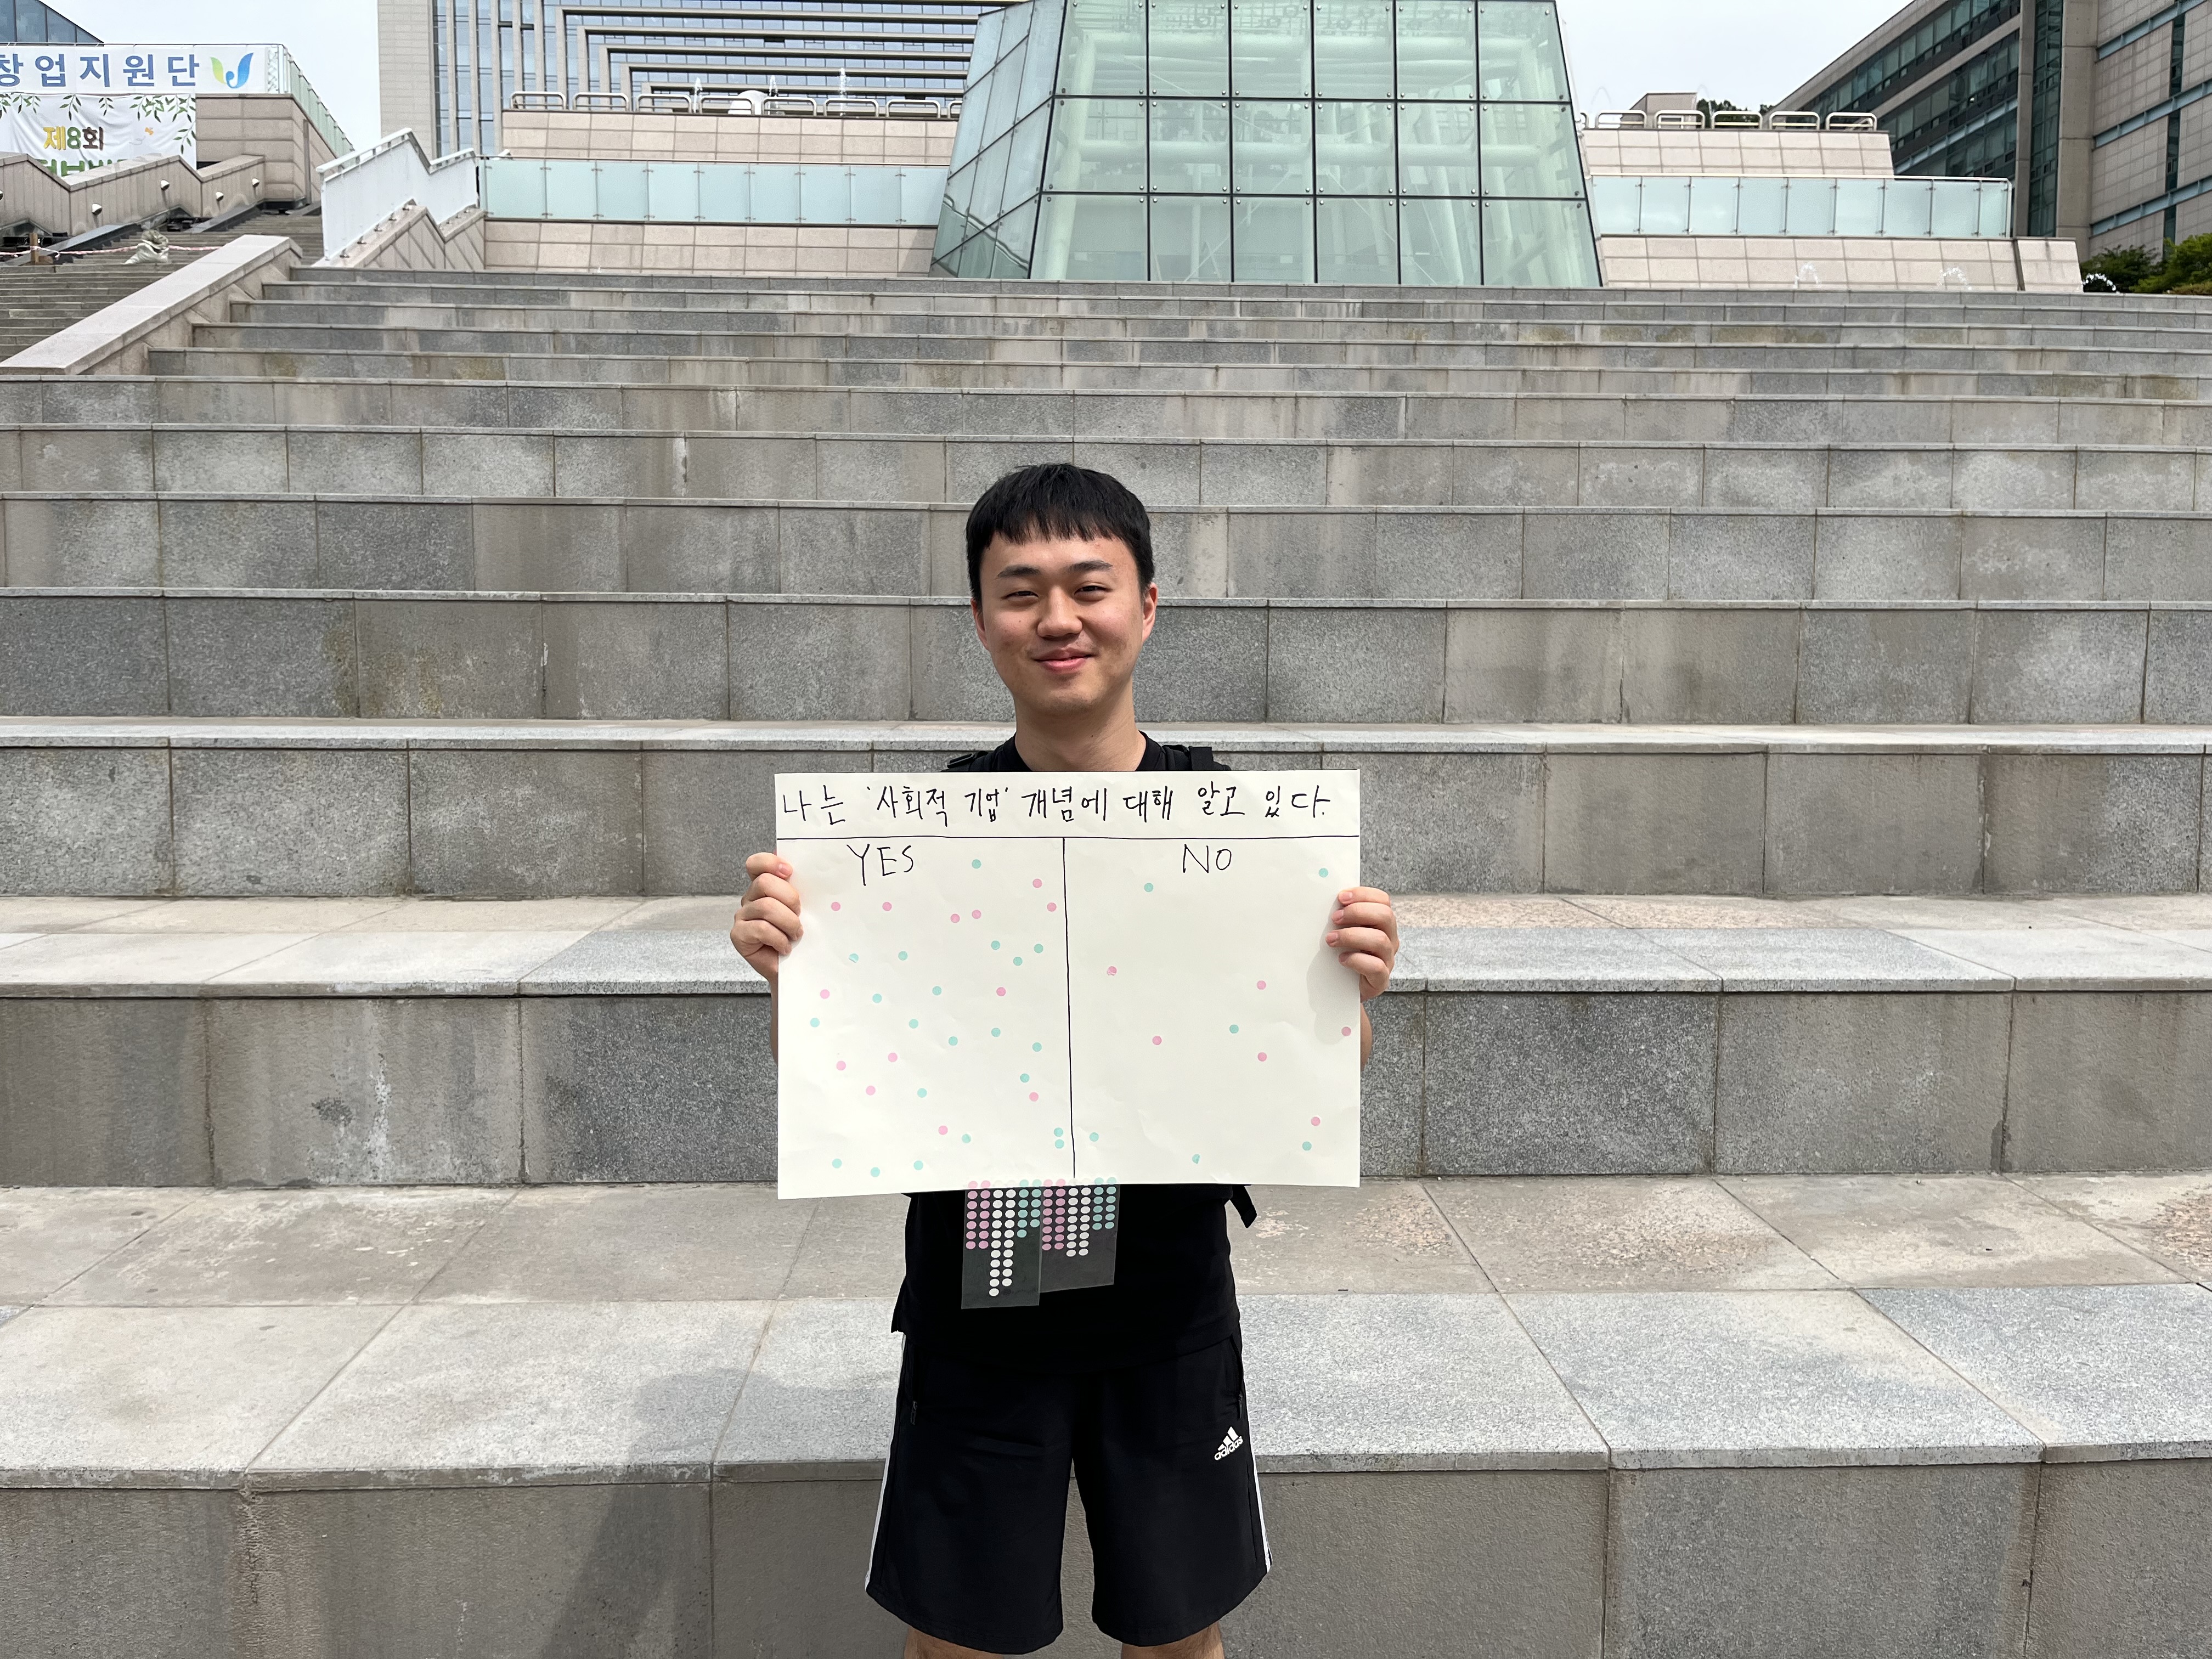 창업지원단
제8회
나는 '사회적 기업' 개념에 대해 알고 있다.
YES
NO
adidas